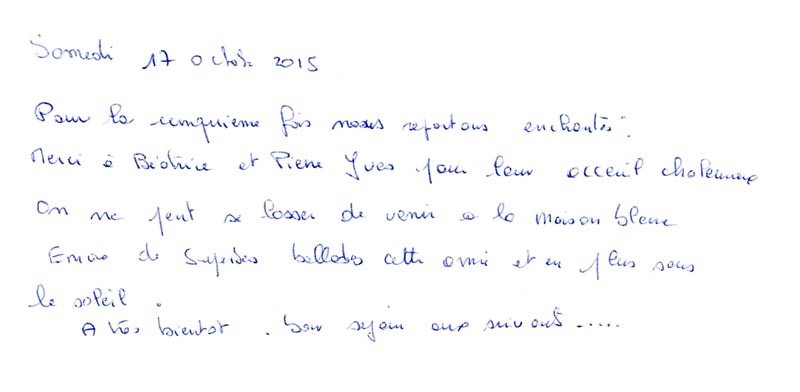 Samedi 17 octobre 2015
Pour la cinquième fois nous repartons enchantés.
Merci à Béatrice et Pierre Yves pour leur acceuil chaleureux
On ne peut se lasser de venir à la maison bleue
Encore de superbes ballades cette année et en plus sous
le soleil.
A très bientôt. bon séjour aux suivants.....